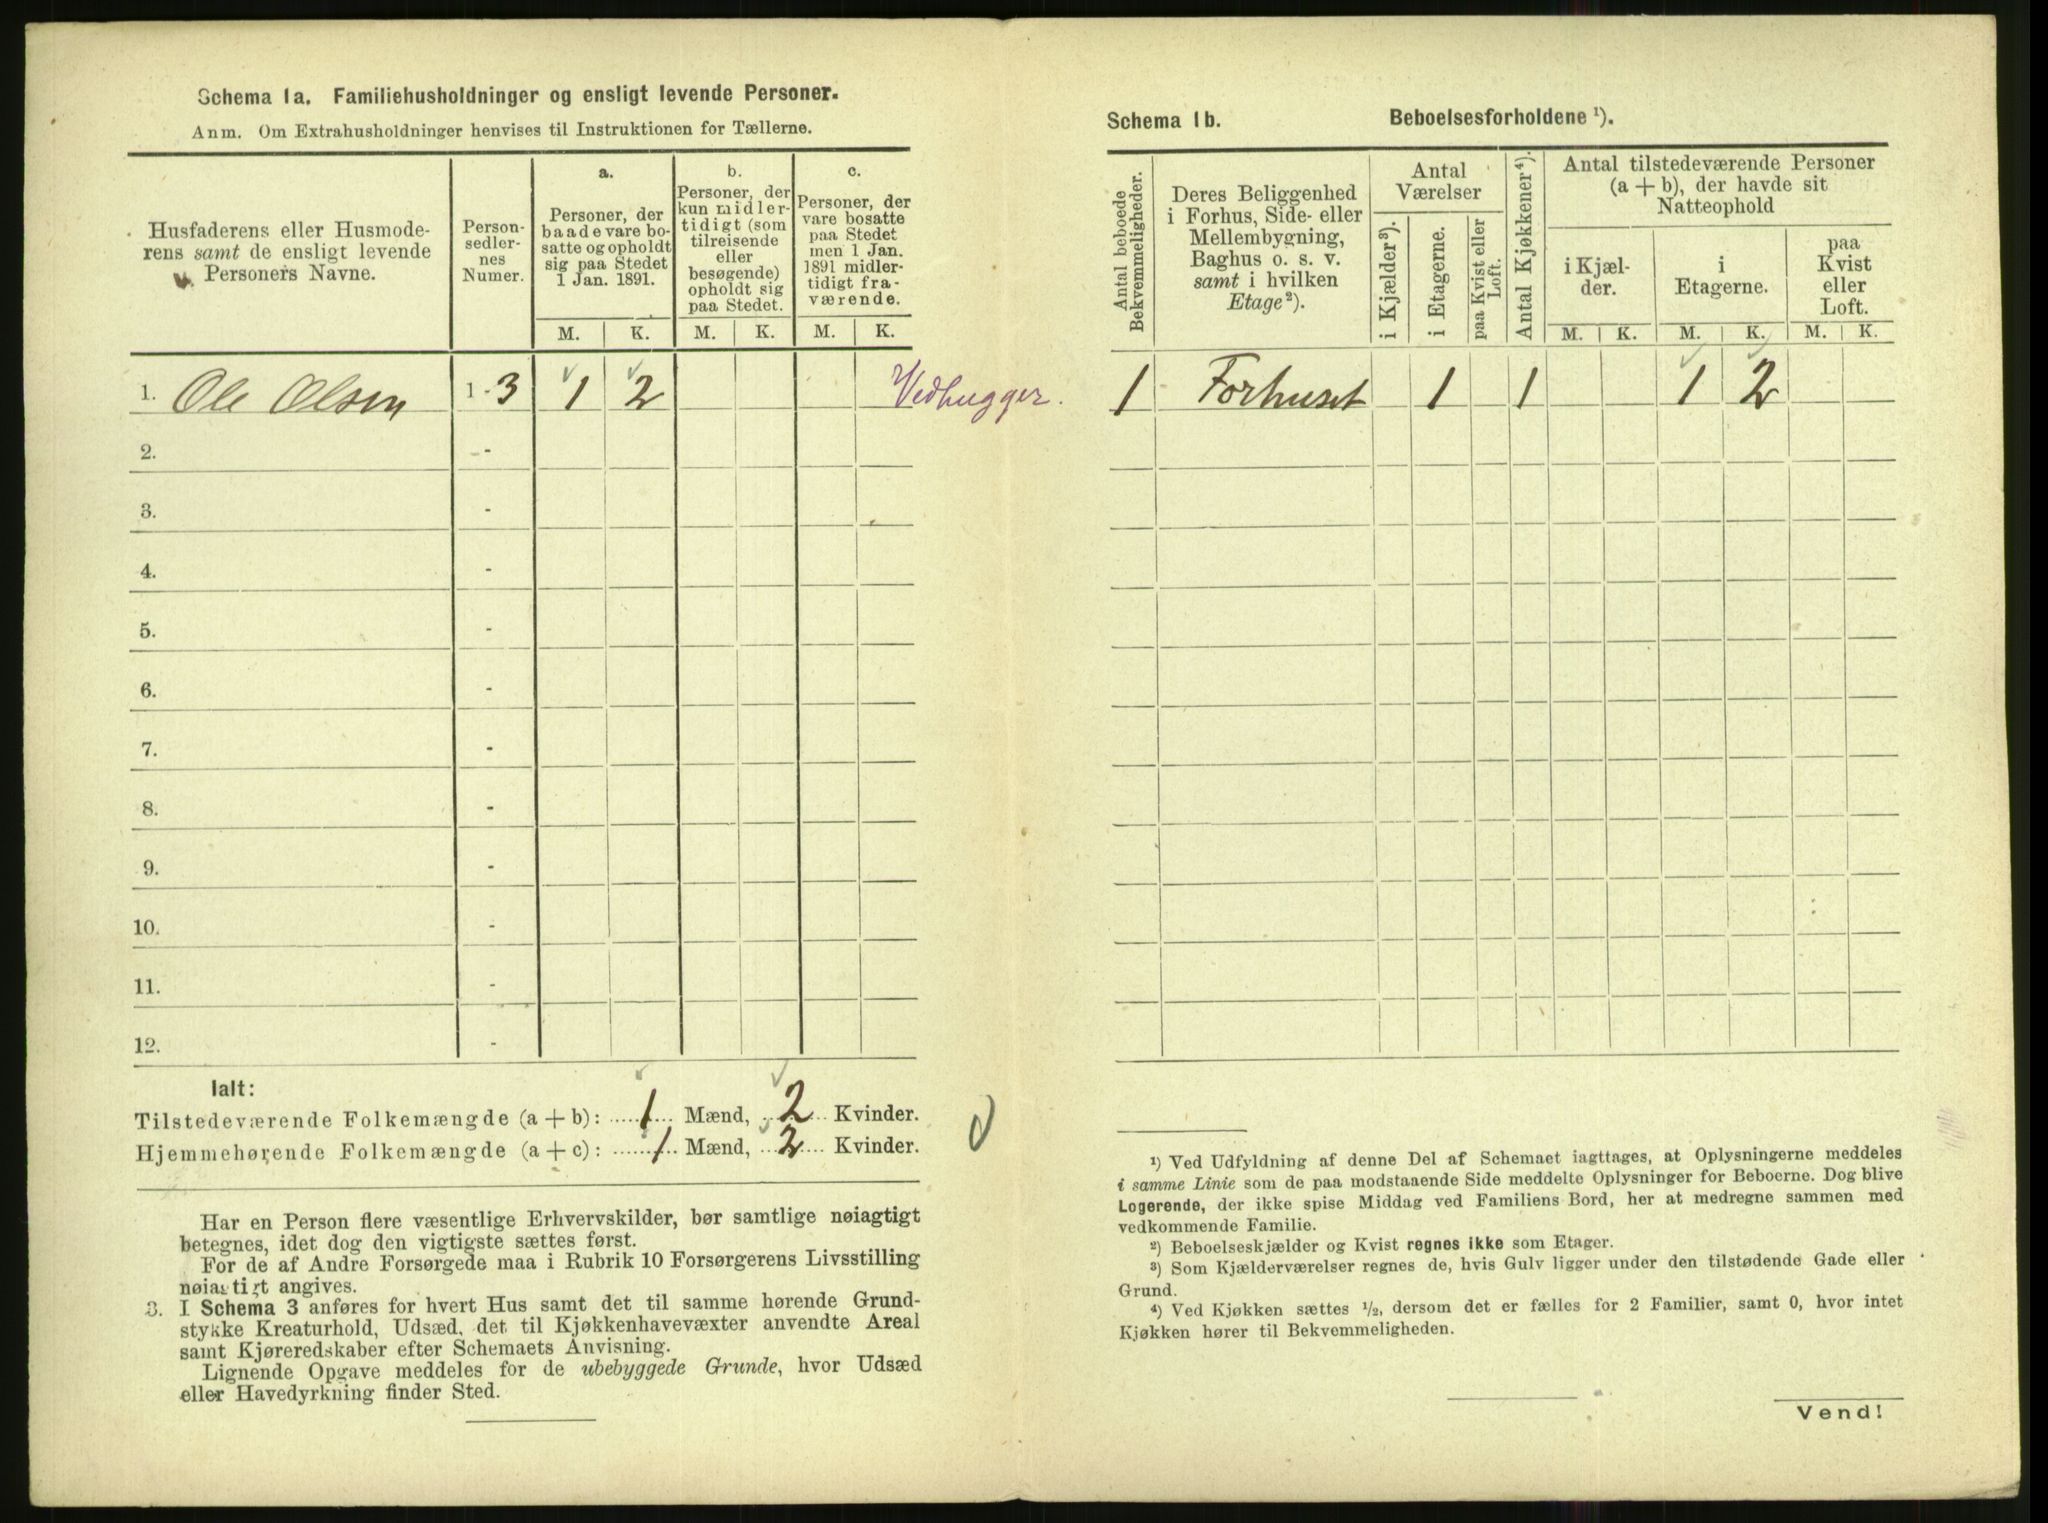 Schema 1a. Familiehusholdninger og ensligt levende Personer.
Anm. Om Extrahusholdninger henvises til Instruktionen for Tællerne.
Husfaderens eller Husmode-
rens samt de ensligt levende
Personers Navne.
Person-
sedler-
nes
Numer.
a.
Personer, der
baade vare bo-
satte og opholdt
sig paa Stedet
1 Jan. 1891.
b.
Personer, der
kun midler-
tidigt (som
tilreisende
eller
besøgende)
opholdt sig
paa Stedet.
c.
Personer, der
vare bosatte
paa Stedet
men 1 Jan.
1891 midler-
tidigt fra-
værende.
M. K. M. K. M. K.
1. Ole Olsen 1-3 1 2 Vedhugger.
2. -
3. -
4. -
5. -
6. -
7. -
8. -
9. -
10. -
11. -
12. -
Ialt:
Tilstedeværende Folkemængde (a + b): 1 Mænd, 2 Kvinder.
Hjemmehørende Folkemængde (a + c): 1 Mænd, 2 Kvinder.
Har en Person flere væsentlige Erhvervskilder, bør samtlige nøiagtigt
betegnes, idet dog den vigtigste sættes først.
For de af Andre Forsørgede maa i Rubrik 10 Forsørgerens Livsstilling
nøiagtigt angives.
3. I Schema 3 anføres for hvert Hus samt det til samme hørende Grund-
stykke Kreaturhold, Udsæd, det til Kjøkkenhavevæxter anvendte Areal
samt Kjøreredskaber efter Schemaets Anvisning.
Lignende Opgave meddeles for de ubebyggede Grunde, hvor Udsæd
eller Havedyrkning finder Sted.
Schema 1b. Beboelsesforholdene ¹).
Antal beboede
Bekvemmeligheder.
Deres Beliggenhed
i Forhus, Side- eller
Mellembygning,
Baghus o. s. v.
samt i hvilken
Etage ²).
Antal
Værelser
i Kjælder ³).
i Etagerne.
paa Kvist eller
Loft.
Antal Kjøkkener ⁴).
Antal tilstedeværende Personer
(a + b), der havde sit
Natteophold
i Kjæl-
der.
i
Etagerne.
paa
Kvist
eller
Loft.
M. K. M. K. M. K.
1 Forhuset 1 1 1 2
¹) Ved Udfyldning af denne Del af Schemaet iagttages, at Oplysningerne meddeles
i samme Linie som de paa modstaaende Side meddelte Oplysninger for Beboerne. Dog blive
Logerende, der ikke spise Middag ved Familiens Bord, her at medregne sammen med
vedkommende Familie.
²) Beboelseskjælder og Kvist regnes ikke som Etager.
³) Som Kjælderværelser regnes de, hvis Gulv ligger under den tilstødende Gade eller
Grund.
⁴) Ved Kjøkken sættes ½, dersom det er fælles for 2 Familier, samt 0, hvor intet
Kjøkken hører til Bekvemmeligheden.
Vend!